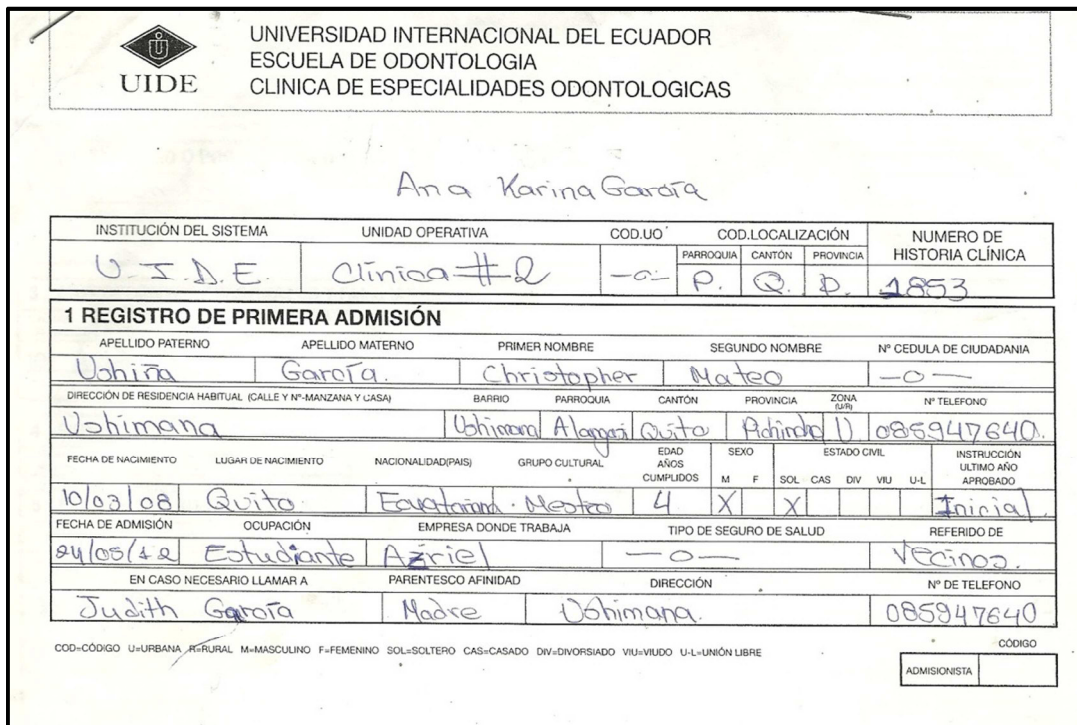 UNIVERSIDAD INTERNACIONAL DEL ECUADOR
ESCUELA DE ODONTOLOGIA
CLINICA DE ESPECIALIDADES ODONTOLOGICAS
UIDE
Ana Karina García
INSTITUCIÓN DEL SISTEMA UNIDAD OPERATIVA COD.UO COD.LOCALIZACIÓN NUMERO DE HISTORIA CLÍNICA
PARROQUIA CANTÓN PROVINCIA
U.I.D.E. Clínica #2 -o- P. Q. P. 1853
1 REGISTRO DE PRIMERA ADMISIÓN
APELLIDO PATERNO APELLIDO MATERNO PRIMER NOMBRE SEGUNDO NOMBRE Nº CEDULA DE CIUDADANIA
Ushiña García. Christopher Mateo -o-
DIRECCIÓN DE RESIDENCIA HABITUAL (CALLE Y Nº-MANZANA Y CASA) BARRIO PARROQUIA CANTÓN PROVINCIA ZONA (U/R) Nº TELEFONO
Ushimana Ushimana Alangasi Quito Pichincha U. 085947640.
FECHA DE NACIMIENTO LUGAR DE NACIMIENTO NACIONALIDAD(PAIS) GRUPO CULTURAL EDAD AÑOS CUMPLIDOS SEXO ESTADO CIVIL INSTRUCCIÓN ULTIMO AÑO APROBADO
M F SOL CAS DIV VIU U-L
10/03/08 Quito Ecuatoriana Mestizo 4 X X Inicial.
FECHA DE ADMISIÓN OCUPACIÓN EMPRESA DONDE TRABAJA TIPO DE SEGURO DE SALUD REFERIDO DE
24/05/12 Estudiante Azriel -o- Vecinos.
EN CASO NECESARIO LLAMAR A PARENTESCO AFINIDAD DIRECCIÓN Nº DE TELEFONO
Judith García Madre Ushimana. 085947640
COD=CÓDIGO U=URBANA R=RURAL M=MASCULINO F=FEMENINO SOL=SOLTERO CAS=CASADO DIV=DIVORSIADO VIU=VIUDO U-L=UNIÓN LIBRE
CÓDIGO
ADMISIONISTA